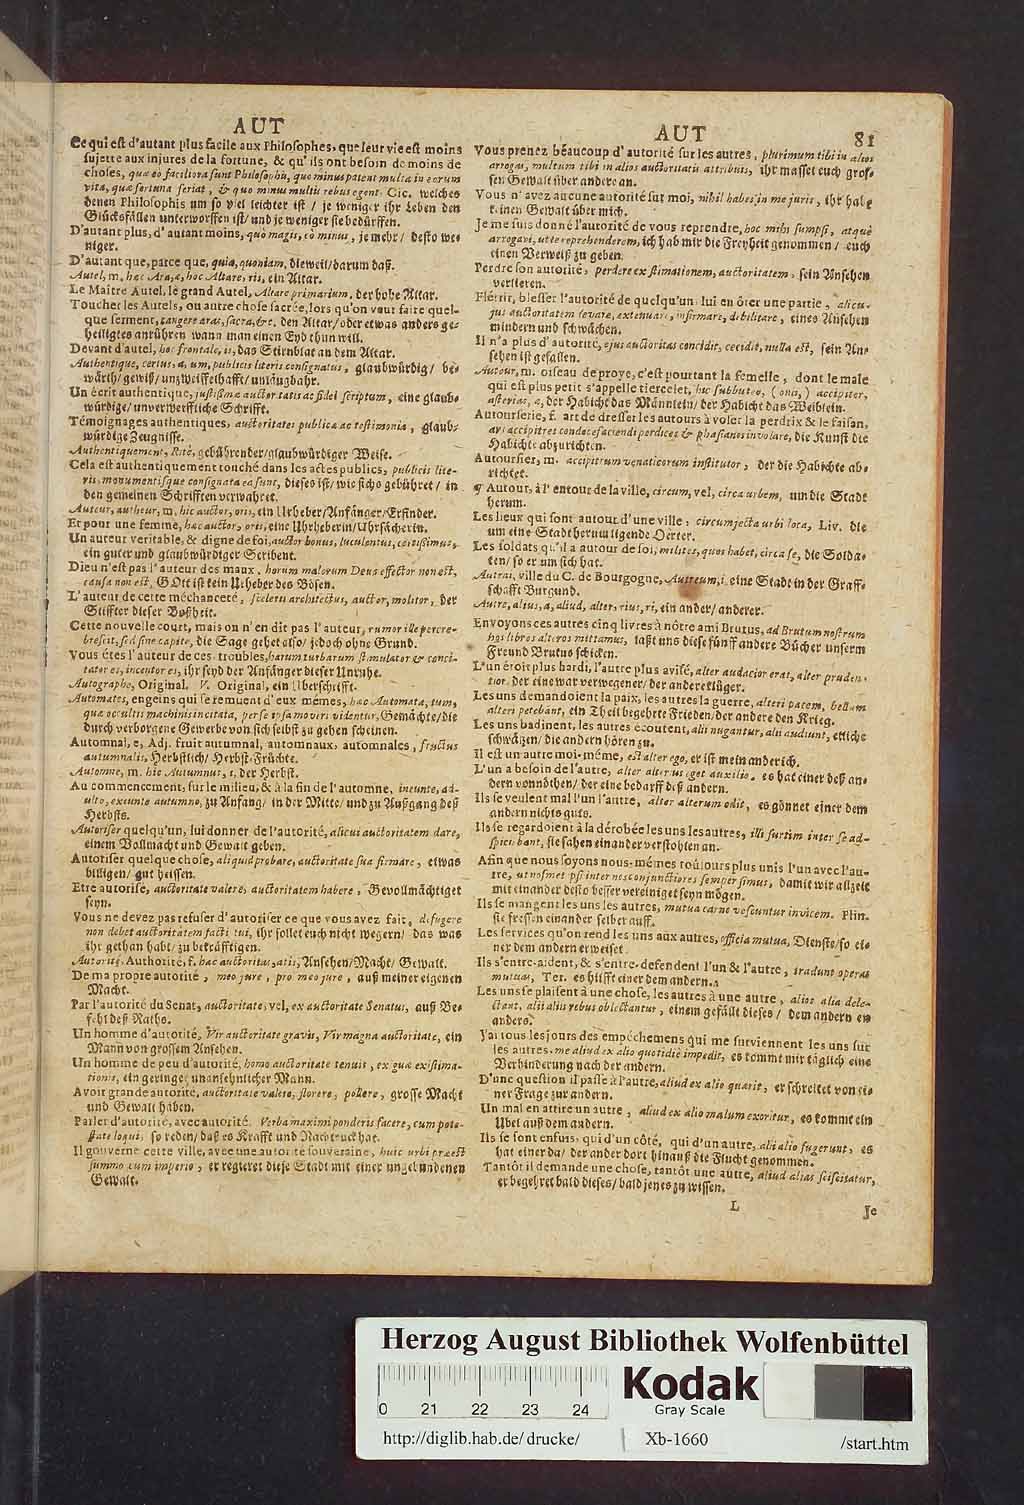 AUT
Ce qui est d'autant plus facile aux Philosophes, que leur vie est moins
sujette aux injures de la fortune, & qu'ils ont besoin de moins de
choses, quæ eò faciliora sunt Philosophis, quo minus patent multa in eorum
vita, quæ fortuna feriat, & quo minus multis rebus egent. Cic. welches
denen Philosophis um so viel leichter ist / je weniger ihr Leben den
Glücksfällen unterworffen ist/ und je weniger sie bedürffen.
D'autant plus, d'autant moins, quò magis, eò minus, je mehr/ desto we-
niger.
D'autant que, parce que, quia, quoniam, dieweil/ darum daß.
Autel, m, hæc Ara, æ, hoc Altare, ris, ein Altar.
Le Maitre Autel, le grand Autel, Altare primarium, der hohe Altar.
Toucher les Autels, ou autre chose sacrée, lors qu'on veut faire quel-
que serment, tangere aras, sacra, &c. den Altar/ oder etwas anders ge-
heiligtes anrühren wann man einen Eyd thun will.
Devant d'autel, hoc frontale, is, das Stirnblat an dem Altar.
Authentique, certus, a, um, publicis literis consignatus, glaubwürdig/ be-
währt/ gewiß/ unzweiffelhafft/ unläugbahr.
Un écrit authentique, justissimæ auctoritatis ac fidei scriptum, eine glaub-
würdige/ unverwerffliche Schrifft.
Témoignages authentiques, auctoritates publicæ ac testimonia, glaub-
würdige Zeugnisse.
Authentiquement, Ritè, gebührender/ glaubwürdiger Weise.
Cela est authentiquement touché dans les actes publics, publicis lite-
ris, monumentisque consignata ea sunt, dieses ist/ wie sichs gebühret/ in
den gemeinen Schrifften verwahret.
Auteur, autheur, m, hic auctor, oris, ein Urheber/ Anfänger/ Erfinder.
Et pour une femme, hæc auctor, oris, eine Uhrheberin/ Uhrsächerin.
Un auteur veritable, & digne de foi, auctor bonus, luculentus, certissimus,
ein guter und glaubwürdiger Scribent.
Dieu n'est pas l'auteur des maux, horum malorum Deus effector non est,
causa non est, GOtt ist kein Urheber des Bösen.
L'auteur de cette méchanceté, sceleris architectus, auctor, molitor, der
Stiffter dieser Boßheit.
Cette nouvelle court, mais on n'en dit pas l'auteur, rumor ille percre-
brescit, sed sine capite, die Sage gehet also/ jedoch ohne Grund.
Vous étes l'auteur de ces troubles, harum turbarum stimulator & conci-
tator es, incentor es, ihr seyd der Anfänger dieser Unruhe.
Autographe, Original. V. Original, ein Uberschrifft.
Automates, engeins qui se remuent d'eux mémes, hæc Automata, tum,
quæ occultis machinis incitata, per se ipsa moveri videntur, Gemächte/ die
durch verborgene Gewerbe von sich selbst zu gehen scheinen.
Automnal, e, Adj. fruit autumnal, automnaux, automnales, fructus
autumnalis, Herbstlich/ Herbst-Früchte.
Automne, m. hic Autumnus, i, der Herbst.
Au commencement, sur le milieu, & à la fin de l'automne, ineunte, ad-
ulto, exeunte autumno, zu Anfang/ in der Mitte/ und zu Außgang deß
Herbsts.
Autoriser quelqu'un, lui donner de l'autorité, alicui auctoritatem dare,
einem Vollmacht und Gewalt geben.
Autoriser quelque chose, aliquid probare, auctoritate sua firmare, etwas
billigen/ gut heissen.
Etre autorisé, auctoritate valere, auctoritatem habere, Gevollmächtiget
seyn.
Vous ne devez pas refuser d'autoriser ce que vous avez fait, defugere
non debet auctoritatem facti tui, ihr sollet euch nicht wegern/ das was
ihr gethan habt/ zu bekräfftigen.
Autorité, Authorité, f. hæc auctoritas, atis, Ansehen/ Macht/ Gewalt.
De ma propre autorité, meo jure, pro meo jure, auß meiner eigenen
Macht.
Par l'autorité du Senat, auctoritate, vel, ex auctoritate Senatus, auß Be-
fehl deß Raths.
Un homme d'autorité, Vir auctoritate gravis, Vir magna auctoritate, ein
Mann von grossem Ansehen.
Un homme de peu d'autorité, homo auctoritate tenuis, exguæ existima-
tionis, ein geringer unansehnlicher Mann.
Avoir grande autorité, auctoritate valere, florere, pollere, grosse Macht
und Gewalt haben.
Parler d'autorité, avec autorité. Verba maximi ponderis facere, cum pote-
state loqui, so reden/ daß es Krafft und Nachtruck hat.
Il gouverne cette ville, avec une autorité souveraine, huic urbi præest
summo cum imperio, er regieret diese Stadt mit einer ungebundenen
Gewalt.
AUT 81
Vous prenez béaucoup d'autorité sur les autres, plurimum tibi in alios
arrogas, multum tibi in alios auctoritatis attribuis, ihr masset euch gros-
sen Gewalt über andere an.
Vous n'avez aucune autorité sur moi, nihil habes in me juris, ihr habt
keinen Gewalt über mich.
Je me suis donné l'autorité de vous reprendre, hoc mihi sumpsi, atque
arrogavi, ut te reprehenderem, ich hab mir die Freyheit genommen/ euch
einen Verweiß zu geben.
Perdre son autorité, perdere existimationem, auctoritatem, sein Ansehen
verlieren.
Flétrir, blesser l'autorité de quelqu'un, lui en ôter une partie, alicu-
jus auctoritatem levare, extenuare, infirmare, debilitare, eines Ansehen
mindern und schwächen.
Il n'a plus d'autorité, ejus auctoritas concidit, cecidit, nulla est, sein An-
sehen ist gefallen.
Autour, m. oiseau de proye, c'est pourtant la femelle, dont le male
qui est plus petit s'appelle tiercelet, hic subbuteo, (onis,) accipiter,
asterias, æ, der Habicht das Männlein/ der Habicht das Weiblein.
Autourserie, f. art de dresser les autours à voler la perdrix & le faisan,
ars accipitres condocefaciendi perdices & phasianos involare, die Kunst die
Habichte abzurichten.
Autoursier, m. accipitrum venaticorum institutor, der die Habichte ab-
richtet.
¶ Autour, à l'entour de la ville, circum, vel, circa urbem, um die Stadt
herum.
Les lieux qui sont autour d'une ville, circumjecta urbi loca, Liv. die
um eine Stadt herum ligende Oerter.
Les soldats qu'il a autour de soi, milites, quos habet, circa se, die Solda-
ten/ so er um sich hat.
Autrai, ville du C. de Bourgogne, Autreum, i, eine Stadt in der Graff-
schafft Burgund.
Autre, alius, a, aliud, alter, rius, ri, ein ander/ anderer.
Envoyons ces autres cinq livres à nôtre ami Brutus, ad Brutum nostrum
hos libros alteros mittamus, laßt uns diese fünff andere Bücher unserm
Freund Brutus schicken.
L'un étoit plus hardi, l'autre plus avisé, alter audacior erat, alter pruden-
tior, der eine war verwegener/ der andere klüger.
Les uns demandoient la paix, les autres la guerre, alteri pacem, bellum
alteri petebant, ein Theil begehrte Frieden/ der andere den Krieg.
Les uns badinent, les autres écoutent, alii nugantur, alii audiunt, etliche
schwätzen/ die andern hören zu.
Il est un autre moi-méme, est alter ego, er ist mein anderich.
L'un a besoin de l'autre, alter alterius eget auxilio, es hat einer deß an-
dern vonnöthen/ der eine bedarff deß andern.
Ils se veulent mal l'un l'autre, alter alterum odit, es gönnet einer dem
andern nichts guts.
Ils se regardoient à la dérobée les uns les autres, illi furtim inter se ad-
spiciebant, sie sahen einander verstohlen an.
Afin que nous soyons nous-mémes toûjours plus unis l'un avec l'au-
tre, ut nosmet ipsi inter nos conjunctiores semper simus, damit wir allzeit
mit einander desto besser vereiniget seyn mögen.
Ils se mangent les uns les autres, mutua carne vescuntur invicem. Plin.
sie fressen einander selber auff.
Les services qu'on rend les uns aux autres, officia mutua, Dienste/ so ei-
ner dem andern erweiset.
Ils s'entre-aident, & s'entre-defendent l'un & l'autre, tradunt operas
mutuas, Ter. es hilfft einer dem andern.
Les uns se plaisent à une chose, les autres à une autre, alios alia dele-
ctant, alii aliis rebus oblectantur, einem gefällt dieses/ dem andern ein
anders.
J'ai tous les jours des empéchemens qui me surviennent les uns sur
les autres, me aliud ex alio quotidie impedit, es kommt mir täglich eine
Verhinderung nach der andern.
D'une question il passe à l'autre, aliud ex alio quærit, er schreitet von ei-
ner Frage zur andern.
Un mal en attire un autre, aliud ex alio malum exoritur, es kommt ein
Ubel auß dem andern.
Ils se sont enfuis, qui d'un côté, qui d'un autre, alii alio fugerunt, es
hat einer da/ der ander dort hinauß die Flucht genommen.
Tantôt il demande une chose, tantôt une autre, aliud alias sciscitatur,
er begehret bald dieses/ bald jenes zu wissen.
L Je
Herzog August Bibliothek Wolfenbüttel
Kodak
Gray Scale
0 21 22 23 24
http://diglib.hab.de/drucke/ Xb-1660 /start.htm